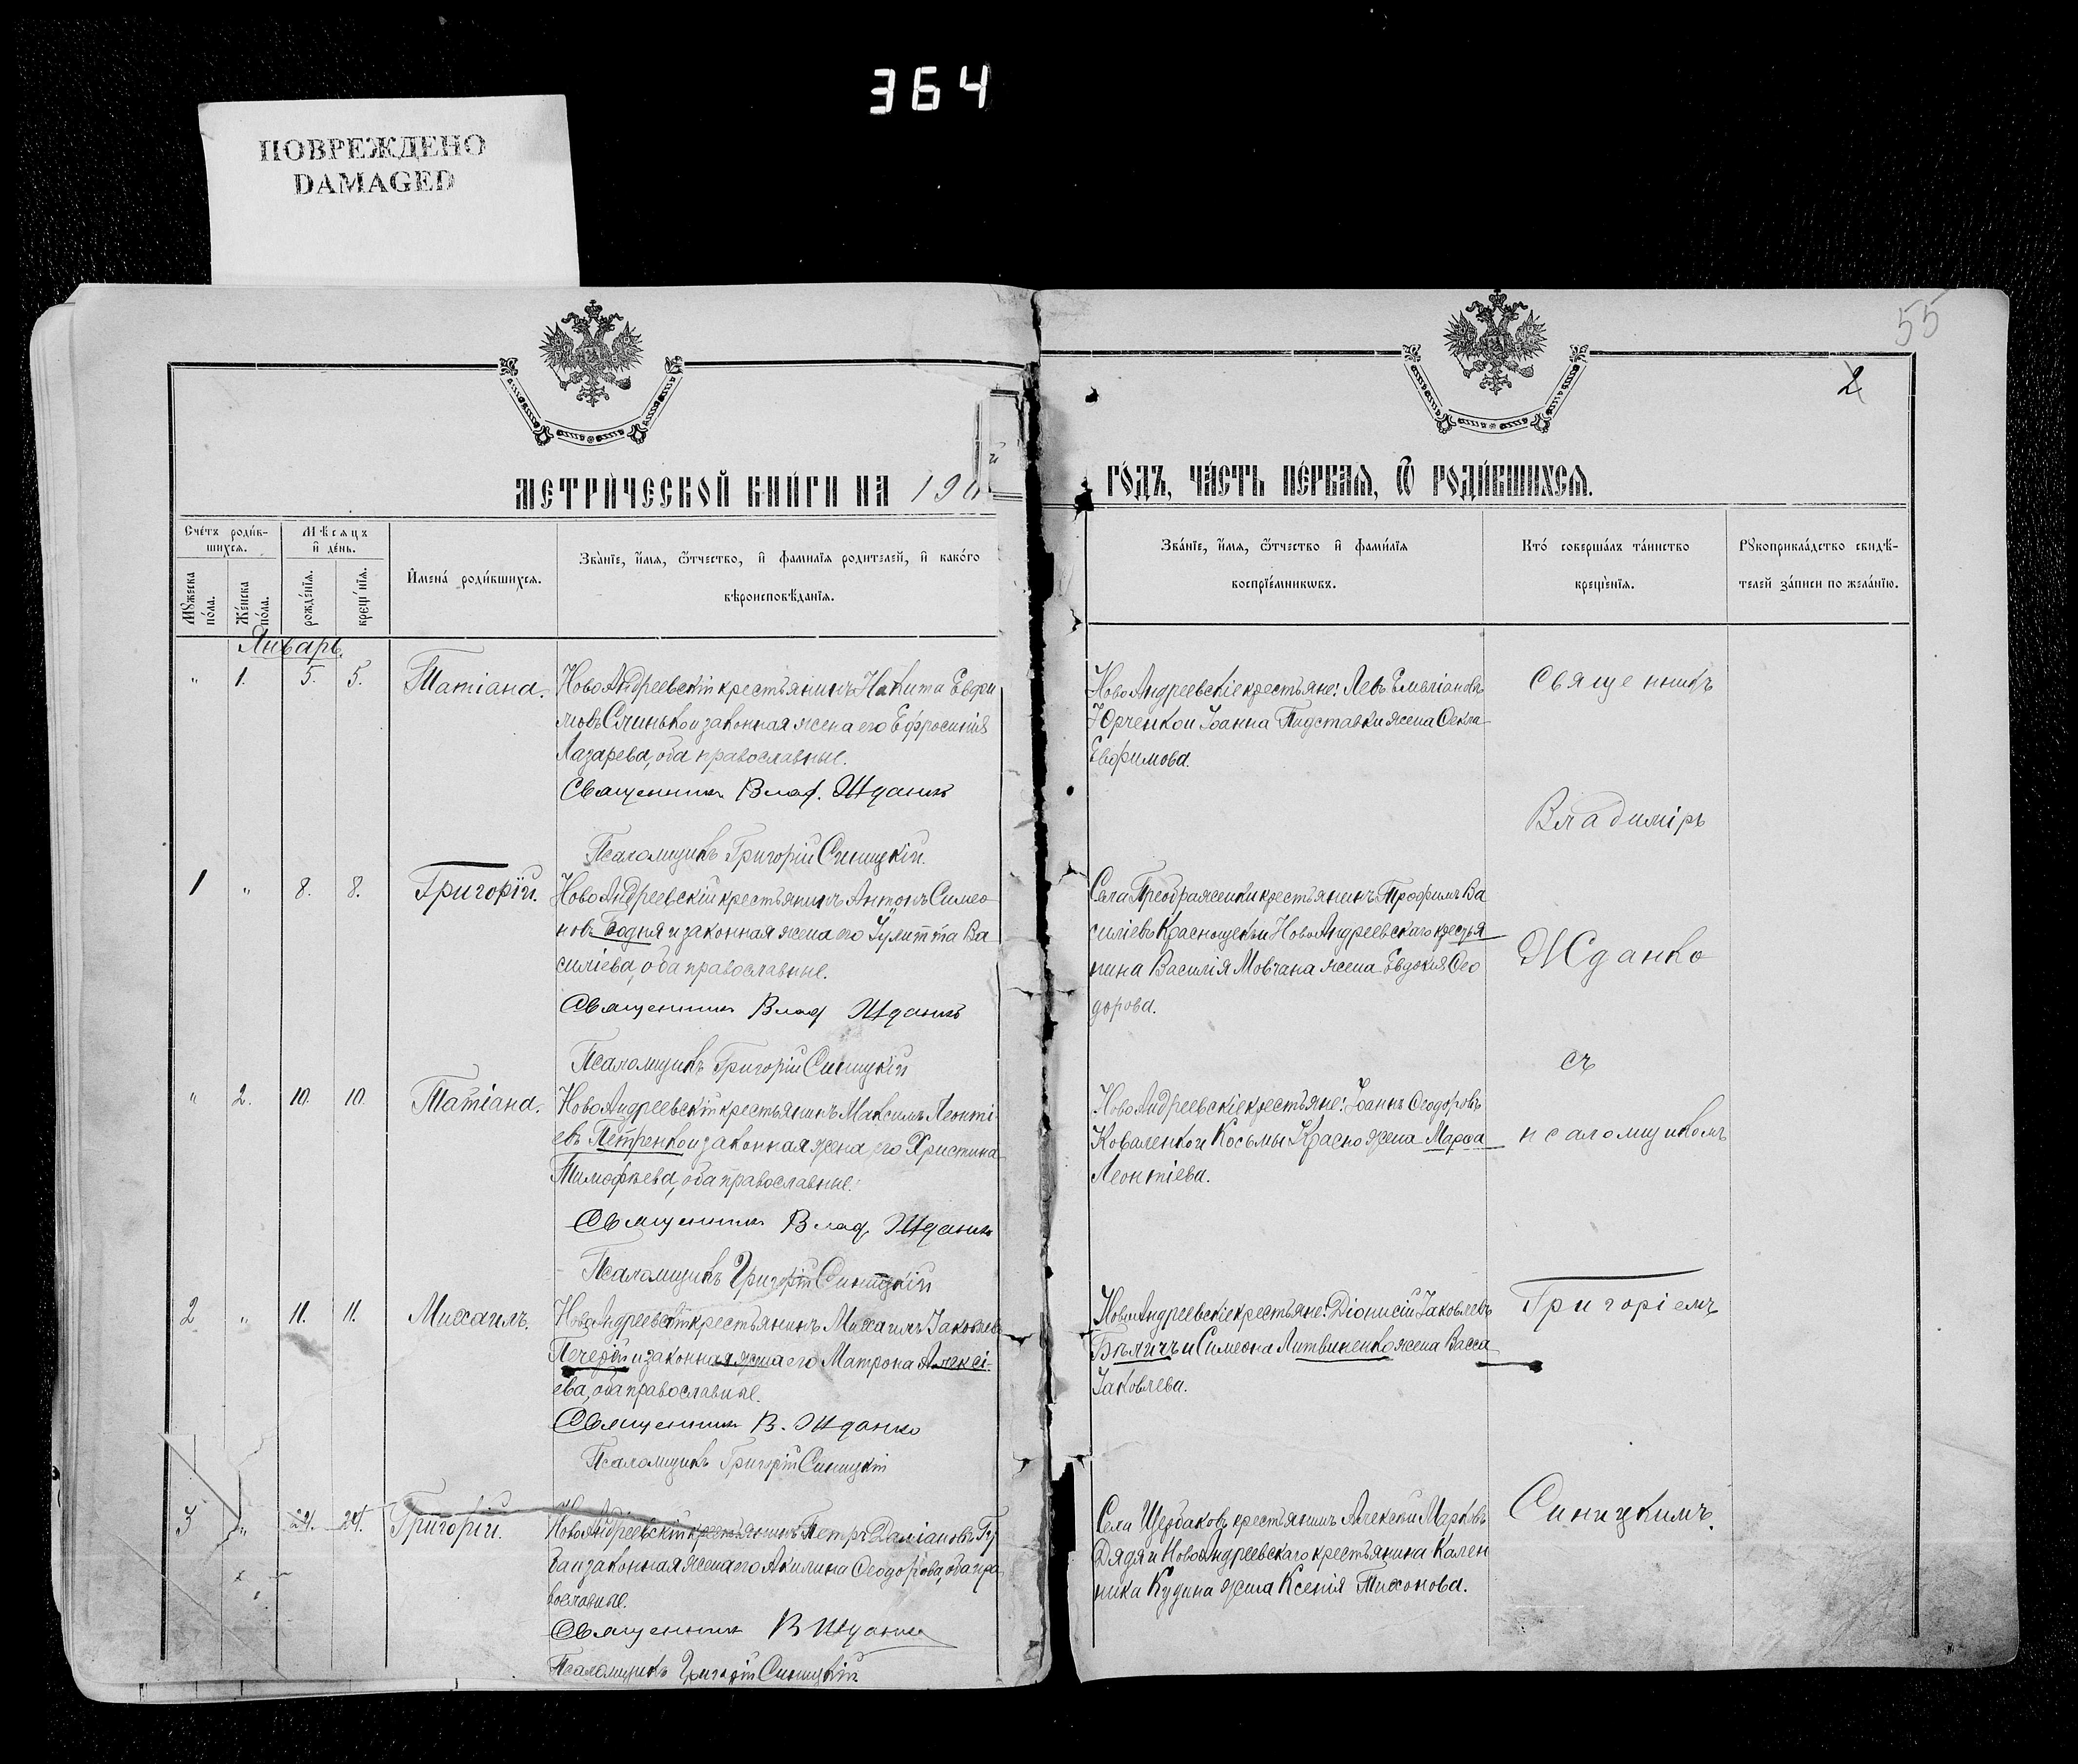 364
ПОВРЕЖДЕНО
DAMAGED
55
2
МЕТРИ́ЧЕСКОЙ КНИ́ГИ НА 190
ГО́ДЪ, ЧА́СТЬ ПЕ́РВАЯ, Ѿ РОДИ́ВШИХСЯ.
Сче́тъ роди́в-
шихся.
Мѣсяцъ
и҆ де́нь.
Мꙋ́жеска
по́ла.
Же́нска
по́ла.
рожде́нїя.
креще́нїя.
И҆мена́ роди́вшихся.
Зва́нїе, и҆́мя, ѻ҆́тчество, и҆ фамилїя родителей, и҆ како́го
вѣроисповѣ́данїя.
Зва́нїе, и҆́мя, ѻ҆́тчество и҆ фами́лїя
воспрїе́мникѡвъ.
Кто́ соверша́лъ та́инство
креще́нїя.
Рꙋкоприкла́дство свидѣ́-
телей за́писи по жела́нїю.
Январь.
" 1. 5. 5. Татіана.
НовоАндреевскій крестьянинъ Никита Евфи
мовъ Слинько и законная жена его Ефросинія
Лазарева, оба православные.
Священникъ Влад. Жданко
Псаломщикъ Григорій Синицкій.
НовоАндреевскіе крестьяне: Левъ Емеліановъ
Юрченко и Іоанна Підставки жена Ѳекла
Евфимова.
1 " 8. 8. Григорій.
НовоАндреевскій крестьянинъ Антонъ Симео
новъ Бодня и законная жена его Іулитта Ва
силіева, оба православные.
Священникъ Влад Жданко
Псаломщикъ Григорій Синицкій
Села Преображенки крестьянинъ Трофимъ Ва
силіевъ Краснощекъ и НовоАндреевскаго крестья
нина Василія Мовчана жена Евдокія Ѳео
дорова.
" 2. 10. 10. Татіана.
НовоАндреевскій крестьянинъ Максимъ Леонті
евъ Петренко и законная жена его Христина
Тимофеева, оба православные.
Священникъ Влад. Жданко
Псаломщикъ Григорій Синицкій
НовоАндреевскіе крестьяне: Іоаннъ Ѳеодоровъ
Коваленко и Косьмы Красно жена Марѳа
Леонтіева.
2 " 11. 11. Михаилъ.
НовоАндреевскій крестьянинъ Михаилъ Іаковлев
и законная жена его Матрона Алексі-
ева, оба православные.
Священникъ В. Жданко
Псаломщикъ Григорій Синицкій
НовоАндреевскіе крестьяне: Діонисій Іаковлевъ
Бѣличъ и Симеона Литвиненко жена Васса
Іаковлева.
3 " 24. 24. Григорій.
НовоАндреевскій крестьянинъ Петръ Даміановъ Гу
ба и законная жена его Акилина Ѳеодорова, оба пра
вославные.
Священникъ В Жданко
Псаломщикъ Григорій Синицкій
Села Щербаковъ крестьянинъ Алексій Марковъ
Дядя и НовоАндреевскаго крестьянина Кален
ника Кудина жена Ксенія Тихонова.
Священникъ
Владиміръ
Жданко
съ
псаломщикомъ
Григоріемъ
Синицкимъ.